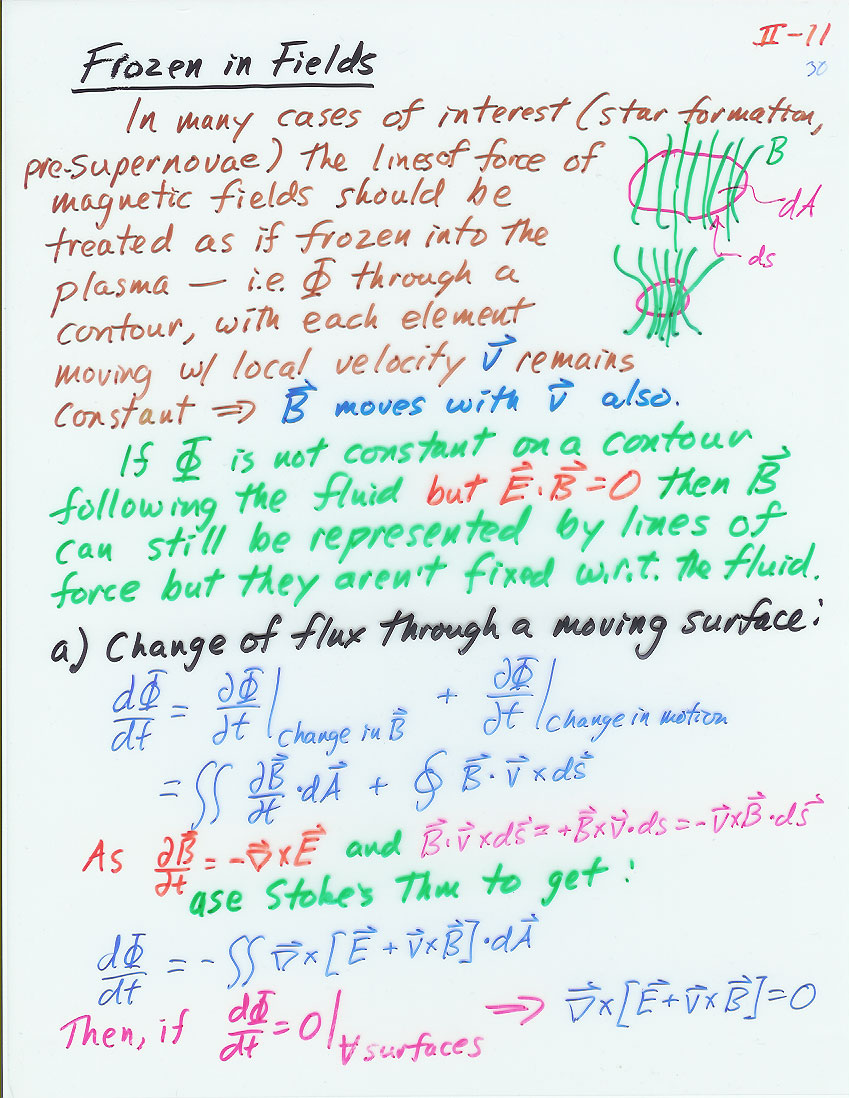 II-11
30
Frozen in Fields
In many cases of interest (star formation,
pre-supernovae) the lines of force of
magnetic fields should be
treated as if frozen into the
plasma — i.e. Φ through a
contour, with each element
moving w/ local velocity v⃗ remains
constant ⇒ B⃗ moves with v⃗ also.
B
dA
ds
If Φ is not constant on a contour
following the fluid but E⃗·B⃗=0 then B⃗
can still be represented by lines of
force but they aren't fixed w.r.t. the fluid.
a) Change of flux through a moving surface:
dΦ/dt = ∂Φ/∂t|change in B⃗ + ∂Φ/∂t|change in motion
= ∬ ∂B⃗/∂t · dA⃗ + ∮ B⃗ · v⃗ × ds⃗
As ∂B⃗/∂t = -∇⃗×E⃗ and B⃗·v⃗×ds⃗ = +B⃗×v⃗·ds = -v⃗×B⃗·ds⃗
use Stoke's Thm to get:
dΦ/dt = -∬ ∇⃗×[E⃗ + v⃗×B⃗]·dA⃗
Then, if dΦ/dt = 0|∀ surfaces ⇒ ∇⃗×[E⃗+v⃗×B⃗]=0